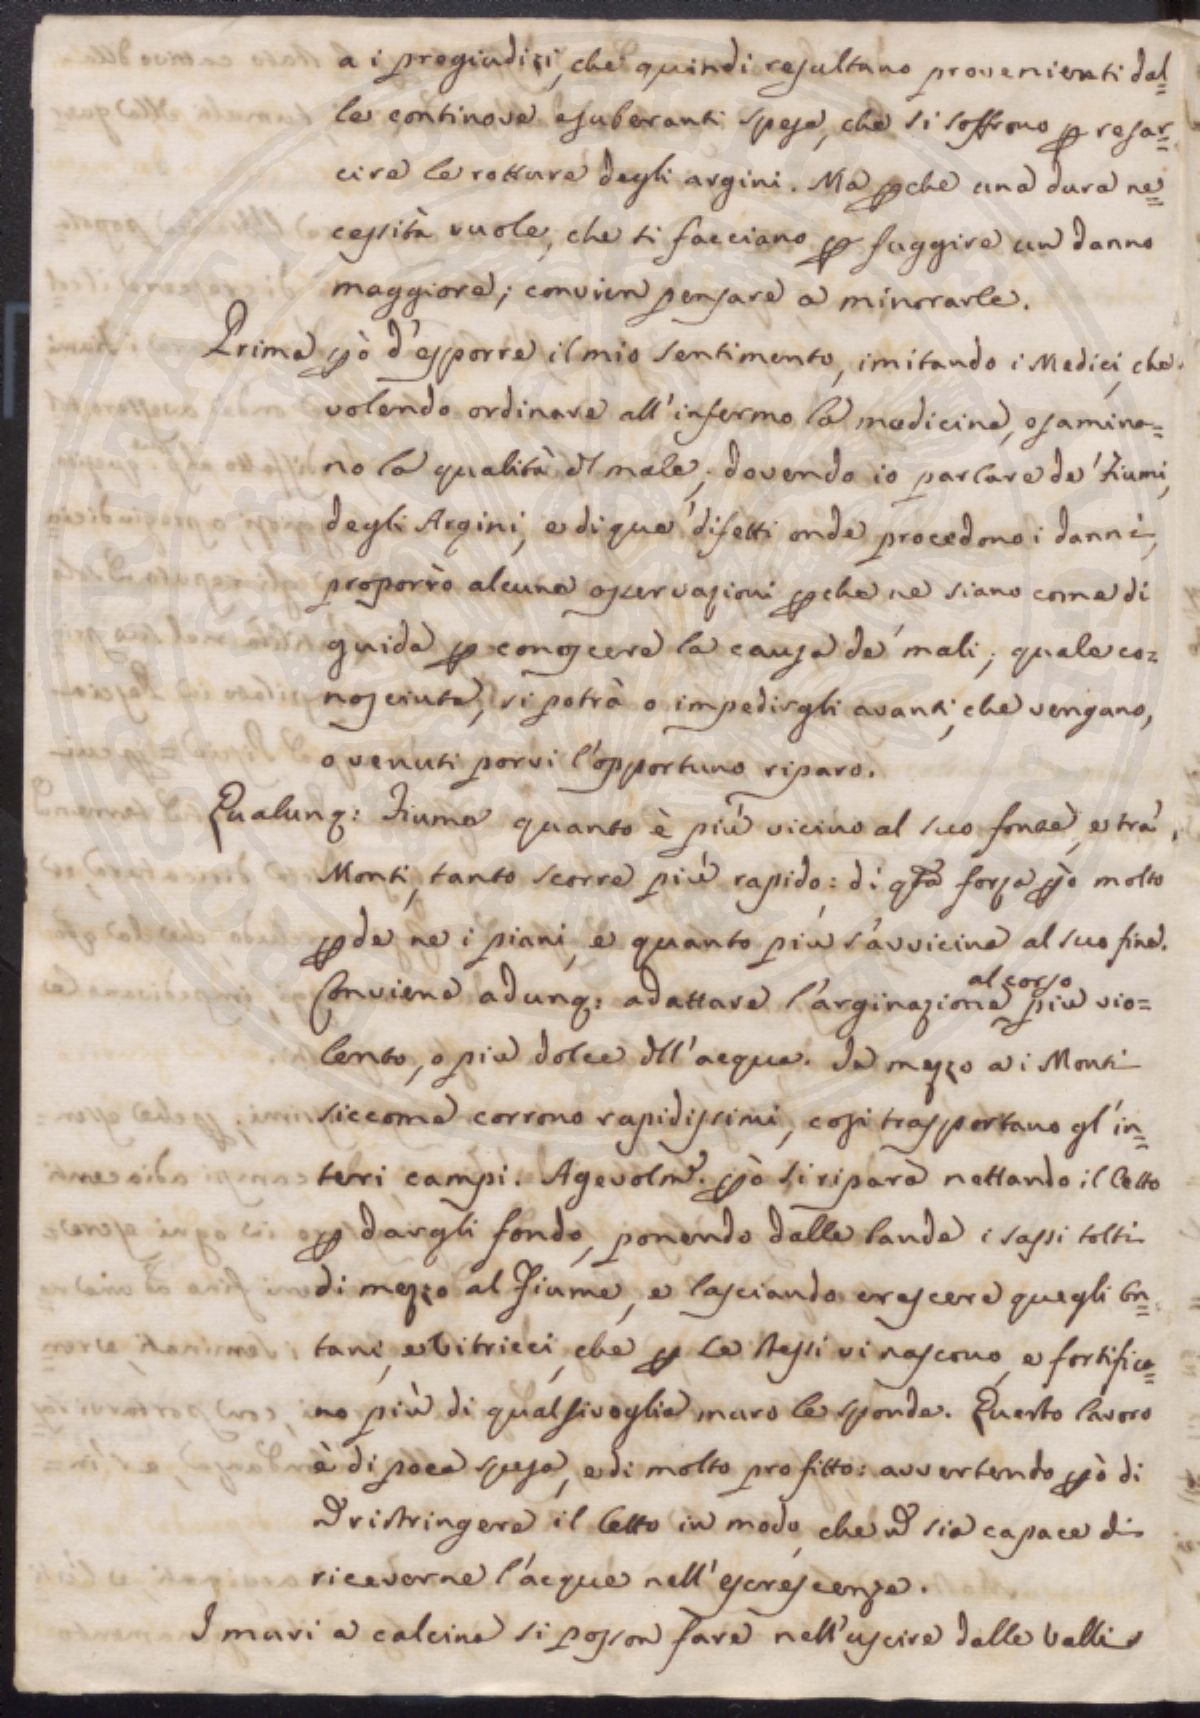 a i pregiudizi, che quindi resultano provenienti dal=
le continove esuberanti spese, che si soffrono ꝑ resar=
cire le rotture degli argini. Ma ꝑche una dura ne=
cessità vuole, che si facciano ꝑ fuggire un danno
maggiore; convien pensare a minorarle.
Prima ꝑò d'esporre il mio sentimento, imitando i Medici, che
volendo ordinare all'infermo la medicina, esamina=
no la qualità dl male; dovendo io parlare de' Fiumi,
degli Argini, e di que' difetti onde procedono i danni,
proporrò alcune osservazioni ꝑche ne siano come di
guida ꝑ conoscere la causa de' mali; quale co=
nosciuta, si potrà o impedirgli avanti, che vengano,
o venuti porvi l'opportuno riparo.
Qualunq: Fiume quanto è più vicino al suo fonte, e trà
Monti, tanto scorre più rapido: di qta forza ꝑò molto
ꝑde ne i piani, e quanto più s'avvicina al suo fine.
Conviene adunq: adattare l'arginazione al corso più vio=
lento, o più dolce dll'acque. In mezzo a i Monti
siccome corrono rapidissimi, così trasportano gl'in=
terri campi. Agevolmte. ꝑò si ripara nettando il letto
ꝑ dargli fondo, ponendo dalle bande i sassi tolti
di mezzo al Fiume, e lasciando crescere quegli On=
tani, e Vitrici, che ꝑ se stessi vi nascono, e fortifica=
no più di qualsivoglia muro le sponde. Questo lavoro
è di poca spesa, e di molto profitto: avvertendo ꝑò di
nō ristringere il letto in modo, che nō sia capace di
riceverne l'acque nell'escrescenze.
I muri a calcina si posson fare nell'uscire dalle Valli